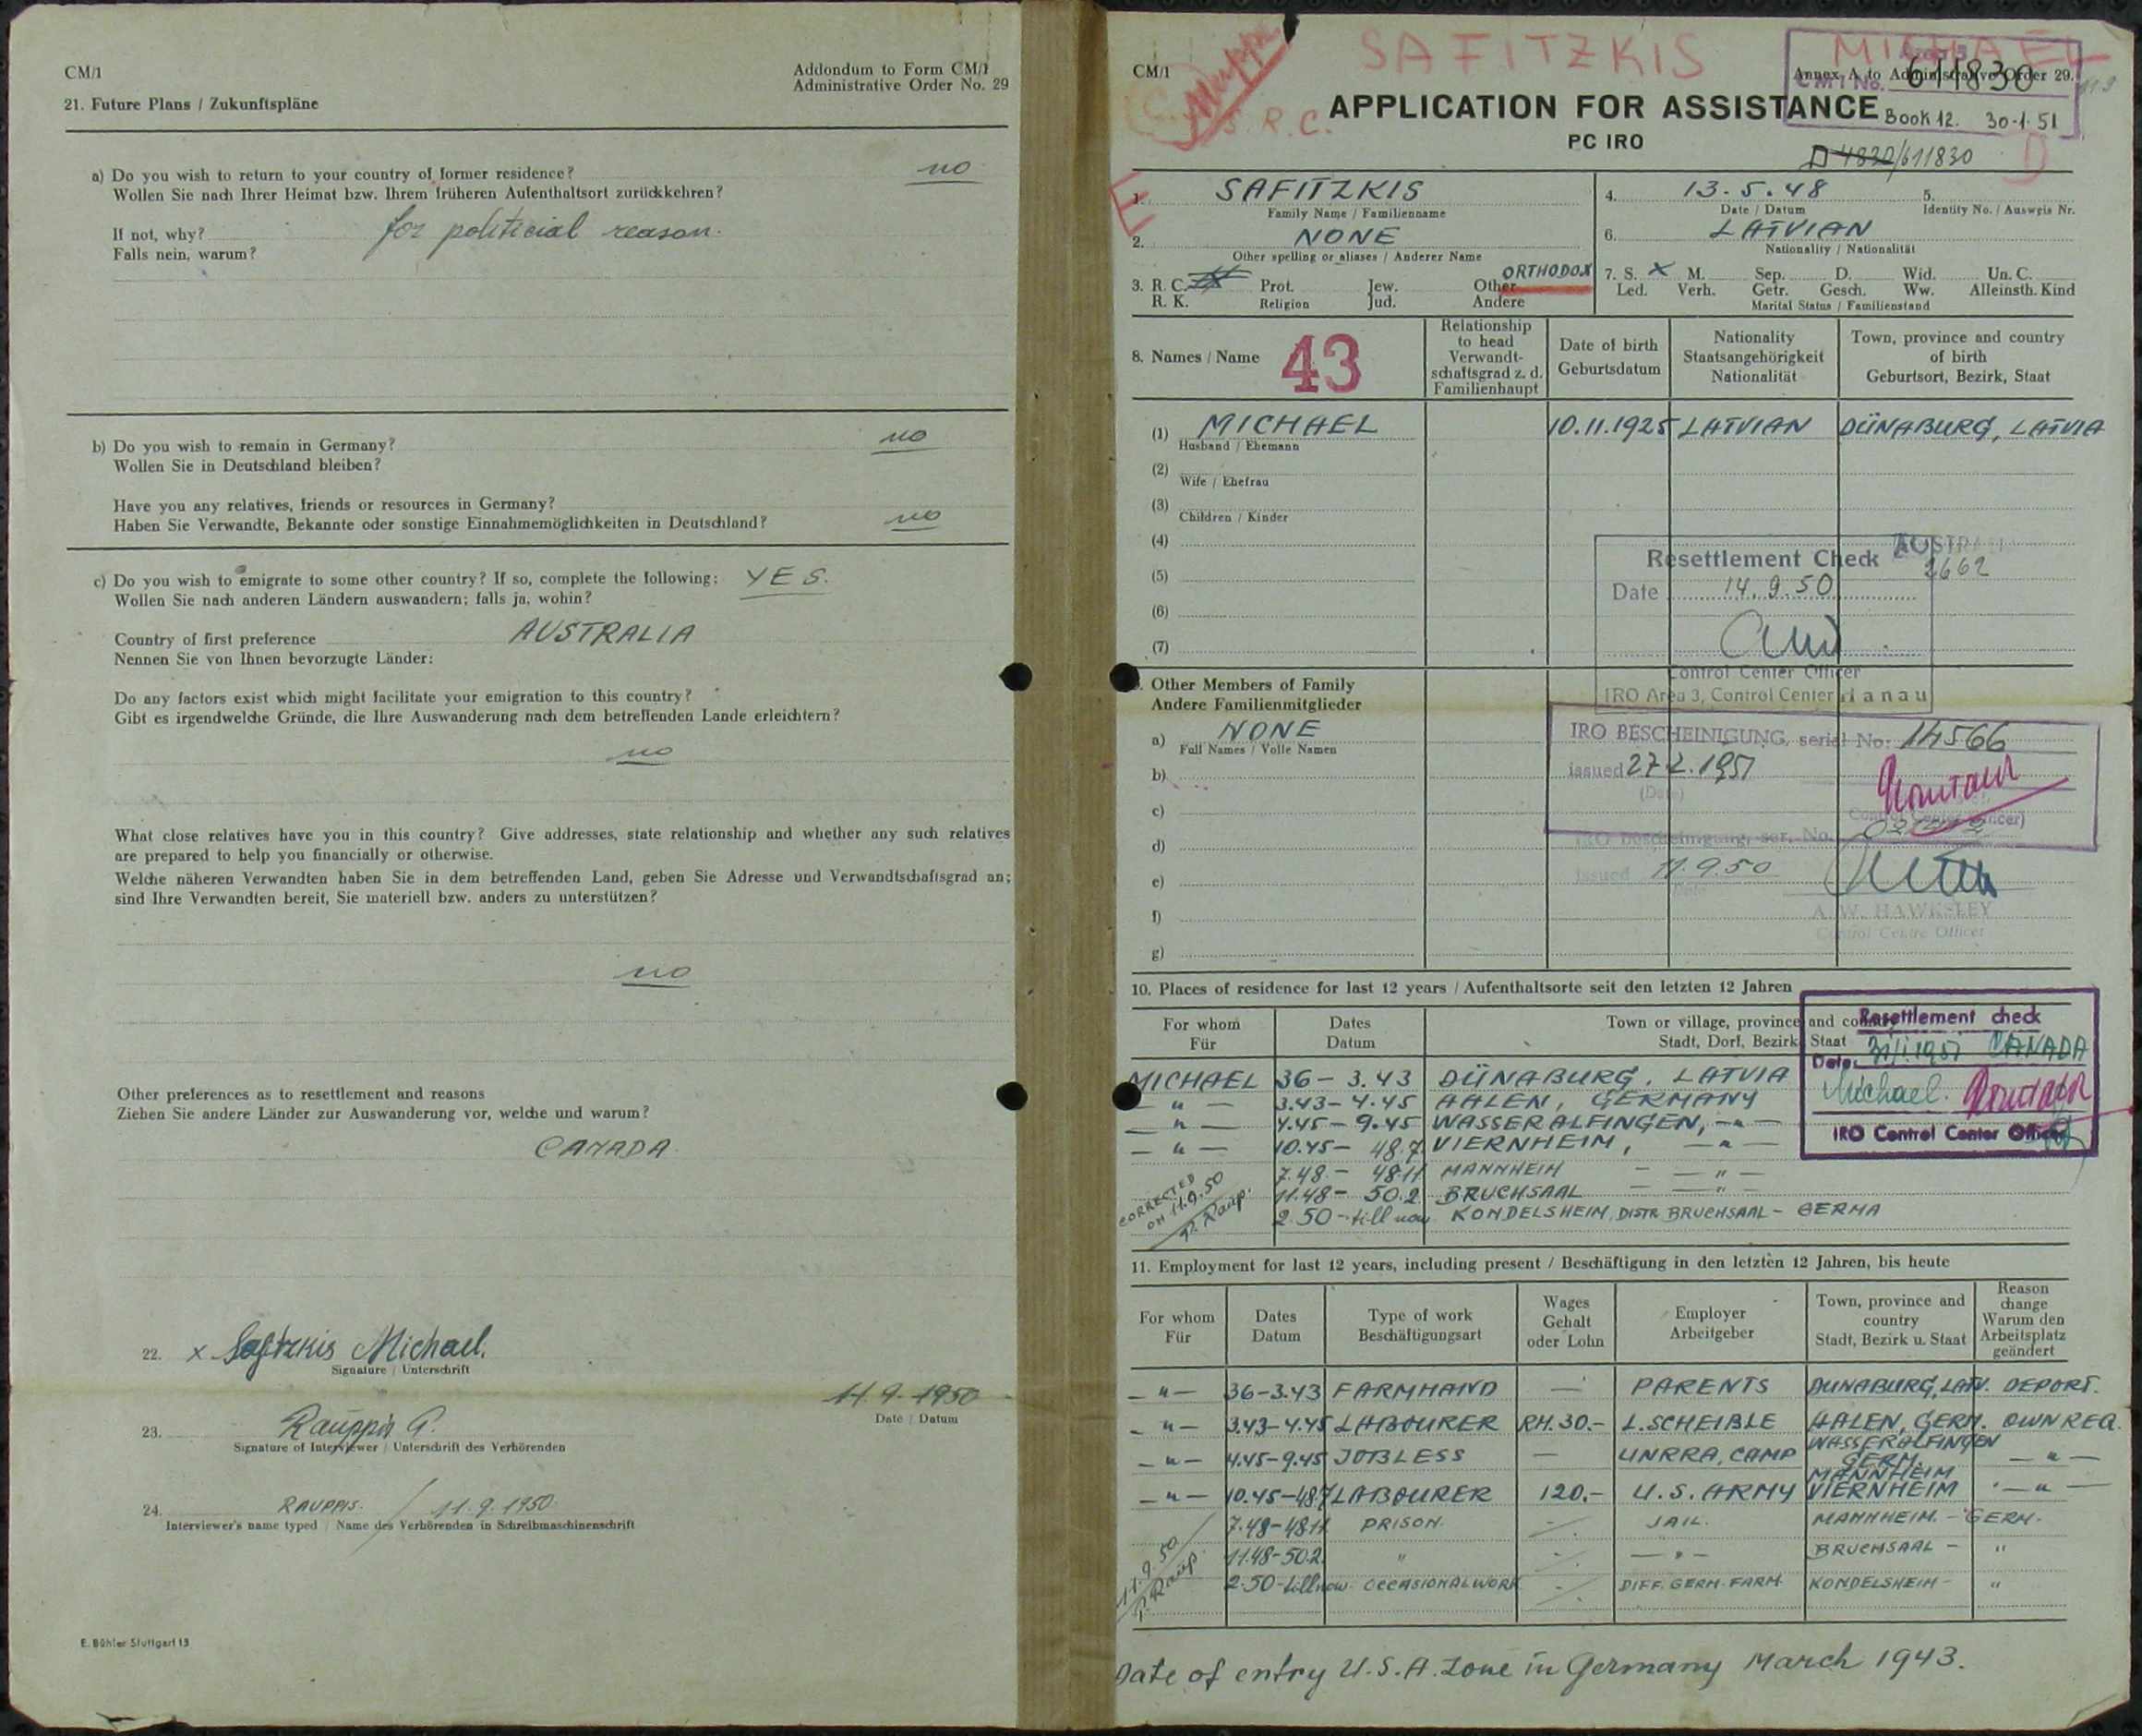 CM/1
Addondum to Form CM/1
Administrative Order No. 29
21. Future Plans / Zukunftspläne
a) Do you wish to return to your country of former residence? no
Wollen Sie nach Ihrer Heimat bzw. Ihrem früheren Aufenthaltsort zurückkehren?
If not, why? for politicial reason.
Falls nein, warum?
b) Do you wish to remain in Germany? no
Wollen Sie in Deutschland bleiben?
Have you any relatives, friends or resources in Germany?
Haben Sie Verwandte, Bekannte oder sonstige Einnahmemöglichkeiten in Deutschland? no
c) Do you wish to emigrate to some other country? If so, complete the following: YES.
Wollen Sie nach anderen Ländern auswandern; falls ja, wohin?
Country of first preference AUSTRALIA
Nennen Sie von Ihnen bevorzugte Länder:
Do any factors exist which might facilitate your emigration to this country?
Gibt es irgendwelche Gründe, die Ihre Auswanderung nach dem betreffenden Lande erleichtern?
no
What close relatives have you in this country? Give addresses, state relationship and whether any such relatives
are prepared to help you financially or otherwise.
Welche näheren Verwandten haben Sie in dem betreffenden Land, geben Sie Adresse und Verwandtschaftsgrad an;
sind Ihre Verwandten bereit, Sie materiell bzw. anders zu unterstützen?
no
Other preferences as to resettlement and reasons
Ziehen Sie andere Länder zur Auswanderung vor, welche und warum?
CANADA
22. x Safitzkis Michael.
Signature / Unterschrift
11.9.1950
Date / Datum
23. Rauppis
Signature of Interviewer / Unterschrift des Verhörenden
24. RAUPPIS. / 11.9.1950
Interviewer's name typed / Name des Verhörenden in Schreibmaschinenschrift
E. Bühler Stuttgart 13
CM/1
SAFITZKIS MICHAEL
Annex A to Administrative Order 29.
CM/1 No. 611830
R.C.
APPLICATION FOR ASSISTANCE
Book 12. 30.1.51
PC IRO
D 4832/611830
D
E
1. SAFITZKIS
Family Name / Familienname
4. 13.5.48
Date / Datum
5.
Identity No. / Ausweis Nr.
2. NONE
Other spelling or aliases / Anderer Name
6. LATVIAN
Nationality / Nationalität
3. R. C. Prot. Jew. Other ORTHODOX
R. K. Religion Jud. Andere
7. S. x M. Sep. D. Wid. Un. C.
Led. Verh. Getr. Gesch. Ww. Alleinsth. Kind
Marital Status / Familienstand
8. Names / Name 43
Relationship to head Verwandt-schaftsgrad z. d. Familienhaupt
Date of birth Geburtsdatum
Nationality Staatsangehörigkeit Nationalität
Town, province and country of birth Geburtsort, Bezirk, Staat
(1) MICHAEL 10.11.1925 LATVIAN DÜNABURG, LATVIA
Husband / Ehemann
(2)
Wife / Ehefrau
(3)
Children / Kinder
(4)
(5)
(6)
(7)
Resettlement Check AUSTRALIA
2662
Date 14.9.50
Control Center Officer
IRO Area 3, Control Center Hanau
Other Members of Family
Andere Familienmitglieder
a) NONE
Full Names / Volle Namen
b)
c)
d)
e)
f)
g)
IRO BESCHEINIGUNG, serial No. 14566
issued 27.2.1951
(Date)
IRO Bescheinigung, ser. No.
issued 11.9.50
A. W. HAWKSLEY
Control Centre Officer
10. Places of residence for last 12 years / Aufenthaltsorte seit den letzten 12 Jahren
For whom Für
Dates Datum
Town or village, province and country
Stadt, Dorf, Bezirk, Staat
Resettlement check
Date. 31/1.1951 CANADA
Michael.
IRO Control Center Officer
MICHAEL 36 - 3.43 DÜNABURG, LATVIA
— " — 3.43 - 4.45 AALEN, GERMANY
— " — 4.45 - 9.45 WASSERALFINGEN, — " —
— " — 10.45 - 48.7 VIERNHEIM, — " —
7.48 - 48.11 MANNHEIM — " —
11.48 - 50.2 BRUCHSAAL — " —
2.50 - till now KONDELSHEIM, DISTR. BRUCHSAAL - GERMA
CORRECTED ON 11.9.50
11. Employment for last 12 years, including present / Beschäftigung in den letzten 12 Jahren, bis heute
For whom Für
Dates Datum
Type of work Beschäftigungsart
Wages Gehalt oder Lohn
Employer Arbeitgeber
Town, province and country Stadt, Bezirk u. Staat
Reason change Warum den Arbeitsplatz geändert
— " — 36-3.43 FARMHAND — PARENTS DÜNABURG, LATV. DEPORT.
— " — 3.43-4.45 LABOURER RM. 30.- L. SCHEIBLE AALEN, GERM. OWN REQ.
— " — 4.45-9.45 JOBLESS — UNRRA, CAMP WASSERALFINGEN GERM. — " —
— " — 10.45-48.7 LABOURER 120.- U.S. ARMY MANNHEIM VIERNHEIM — " —
7.48-48.11 PRISON. JAIL. MANNHEIM. - GERM.
11.48-50.2. " — " — BRUCHSAAL - "
2.50-till now OCCASIONAL WORK DIFF. GERM. FARM. KONDELSHEIM - "
11.9.50
Date of entry U.S.A. Zone in Germany March 1943.